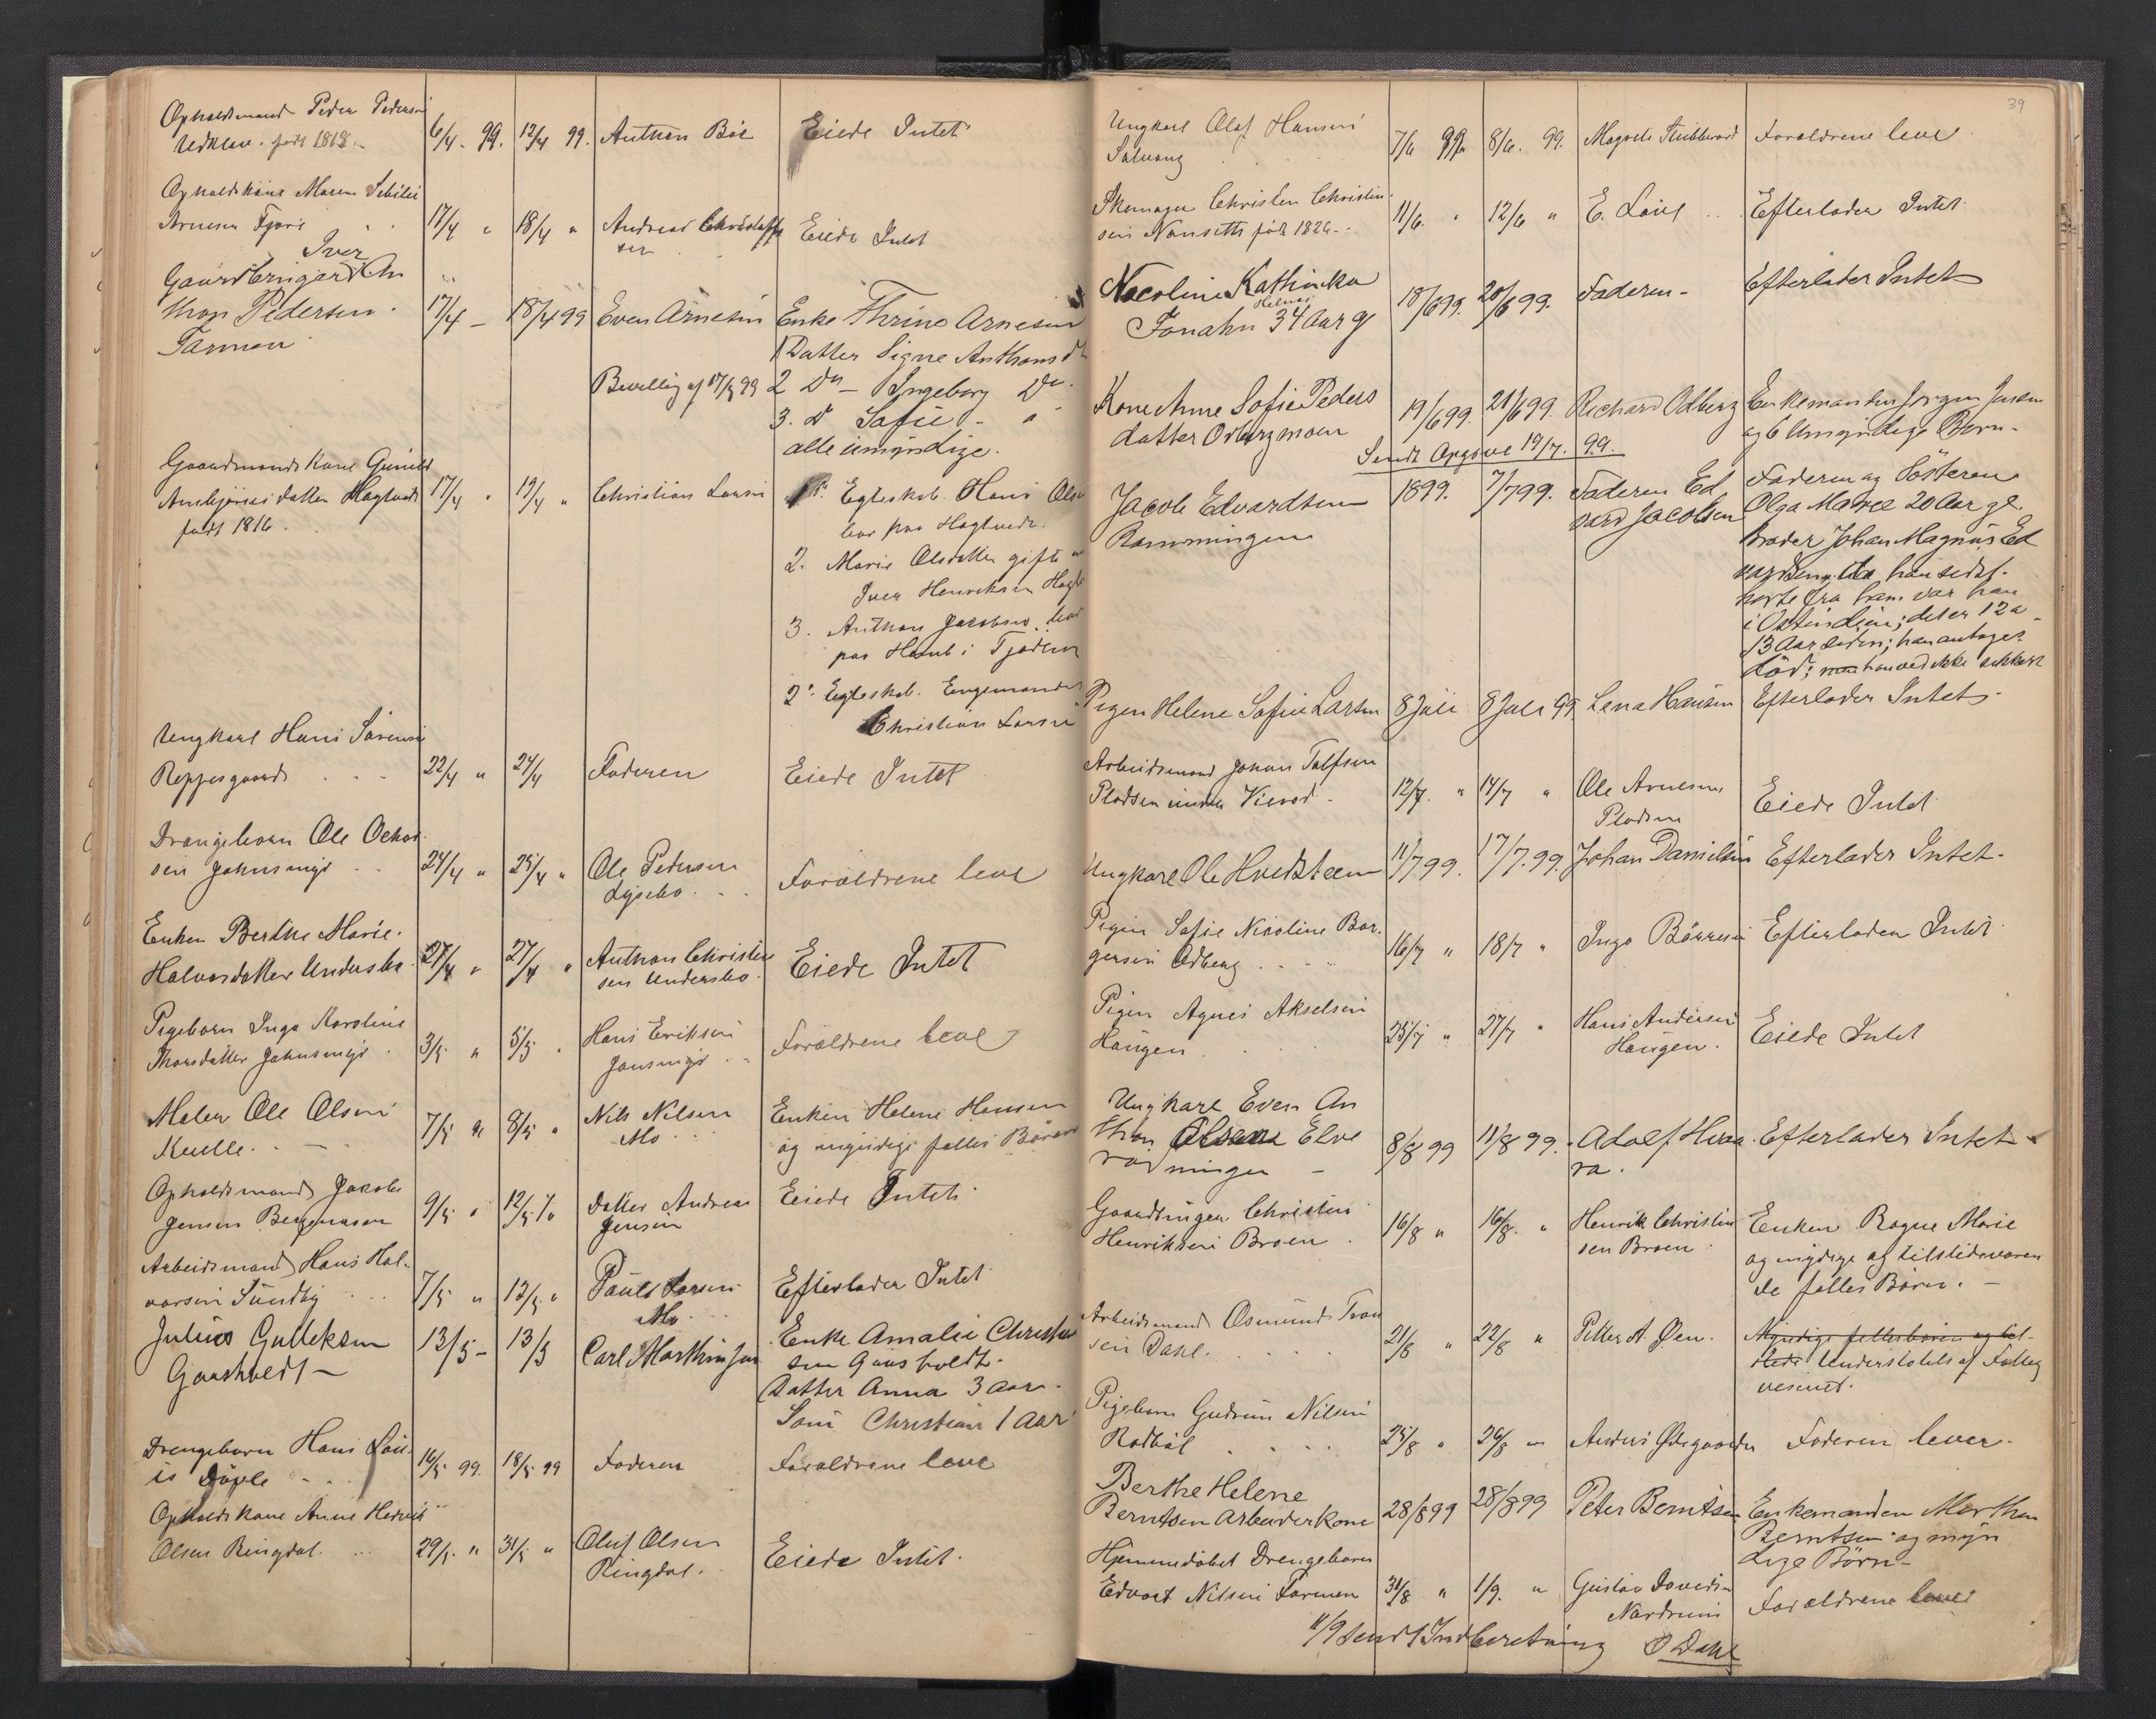 Opholdsmand Peder Pedersen
født 1818.
6/4. 99. 12/4 99. Anthon Bøe Eiede Intet
Opholdskone Maren
Arnesen 17/4 " 18/4 " Andreas Christoffer
sen Eiede Intet
Iver
Gaardbruger An
thon Pedersen
Farmen
17/4 — 18/4 99 Even Arnesen Enke Thrine Arnesen
1 Datter Signe Anthonsdt
Bevilling af 17/5 99 2 Do — Ingeborg Do
3. D Sofie - "
alle umyndige.
Gaardmands Kone
datter Hagtvedt
født 1816.
17/4 " 19/4 " Christian Larsen 1st Egteskab. Hans Olsen
bor paa Hagtvedt.
2. Marie Olsdatter gift m
Iver Henriksen
3. Anthon Jacobsen bor
paa i Tjødling
2. Egteskab. Enkemanden
Christian Larsen
Ungkarl Hans Sørensen
Reppesgaard 22/4 " 24/4 Faderen Eiede Intet
Drengebarn Ole
sen Jahnsmyr 24/4 " 25/4 " Ole Pedersen
Lysebo Forældrene leve
Enken Berthe Marie
Halvorsdatter Undersbo 27/4 " 27/4 " Anthon Christen
sen Undersbo Eiede Intet
Pigebarn Inga Karoline
Thorsdatter Jahnsmyr 3/5 " 5/5 " Hans Eriksen
Jansmyr Forældrene leve
Maler Ole Olsen
7/5 " 8/5 " Nils Nilsen
Mo Enken Helene Hansen
og umyndige fælles Børn
Opholdsmand Jacob
Jensen 9/5 " 12/5 Datter Andrea
Jensen Eiede Intet
Arbeidsmand Hans Hal-
vorsen Sundby 7/5 " 12/5 " Paul Larsen
Mo Efterlader Intet
Julius Gulliksen
Gaasholdt — 13/5 - 13/5 Carl Marthinsen Enke Amalie Christen
sen Gaasholdt.
Datter Anna 3 Aar.
Søn Christian 1 Aar
Drengebarn Hans Lou-
is 16/5 99. 18/5 99 Faderen Forældrene leve
Opholdskone Anne Hedvig
Olsen Ringdal 29/5 " 31/5 " Oluf Olsen
Ringdal. Eiede Intet.
39
Ungkarl Olaf Hansen
Solvang 7/6 99 8/6. 99. Forældrene leve
Skomager Christen Christen-
sen Nanseth født 1826 11/6. " 12/6 " E. Løve Efterlader Intet
Nicoline Kathinka
Helene
Jonahn 34 Aar gl 18/6 99. 20/6 99. Faderen - Efterlader Intet
Kone Anne Sofie Peders
datter Odbergmoen 19/6 99. 21/6 99. Richard Odberg Enkemanden Jørgen Jensen
og 6 Umyndige Børn -
Sendt Opgave 19/7. 99.
Jacob Edvardsen
Rønningen 1899. 7/7 99. Faderen Ed
vard Jacobsen Faderen og Søsteren
Olga Marie 20 Aar gl.
Broder Johan Magnus Ed
vardsen, da han sidst
hørte fra ham var han
i Ostindien; det er 12 a
13 Aar siden; han antages
død; men han ved ikke sikkert
Pigen Helene Sofie Larsen 8 Juli 8 Juli 99 Lena Hansen Efterlader Intet -
Arbeidsmand Johan
Pladsen under 12/7. " 14/7 " Ole Arnesen
Pladsen Eiede Intet
Ungkarl Ole Hvidsteen 11/7 99. 17/7. 99. Johan Danielsen Efterlader Intet -
Pigen Sofie Nicoline Bør-
gersen Odberg 16/7 " 18/7 " Inga Børresen Efterlader Intet
Pigen Agnes Akselsen
Haugen 25/7 " 27/7 " Hans Andersen
Haugen. Eiede Intet
Ungkarl Even An
thon Olsen Elve
rødningen - 8/8 99 11/8 99. Adolf
ra. Efterlader Intet
Gaardbruger Christen
Henriksen Broen 16/8 " 16/8. " Henrik Christen
sen Broen Enken Ragne Marie
og myndige og tilstedeværen
de fælles Børn. —
Arbeidsmand Osmund
sen Dahl. 21/8 " 22/8 " Petter A. Øen. Myndige fællesbørn og
Understøttet af Fattig
vesenet.
Pigebarn Gudrun Nilsen
25/8 " 26/8 " Anders Ødegaarden Faderen lever.
Berthe Helene
Berntsen Arbeiderkone 28/8 99 28/8 99 Peter Berntsen Enkemanden Marthin
Berntsen og myn
dige Børn -
Hjemmedøbt Drengebarn
Edvart Nilsen Farmen 31/8 " 1/9. " Gustav Davidsen
Nordrum Forældrene leve
11/9 Sendt Indberetning O Dahl